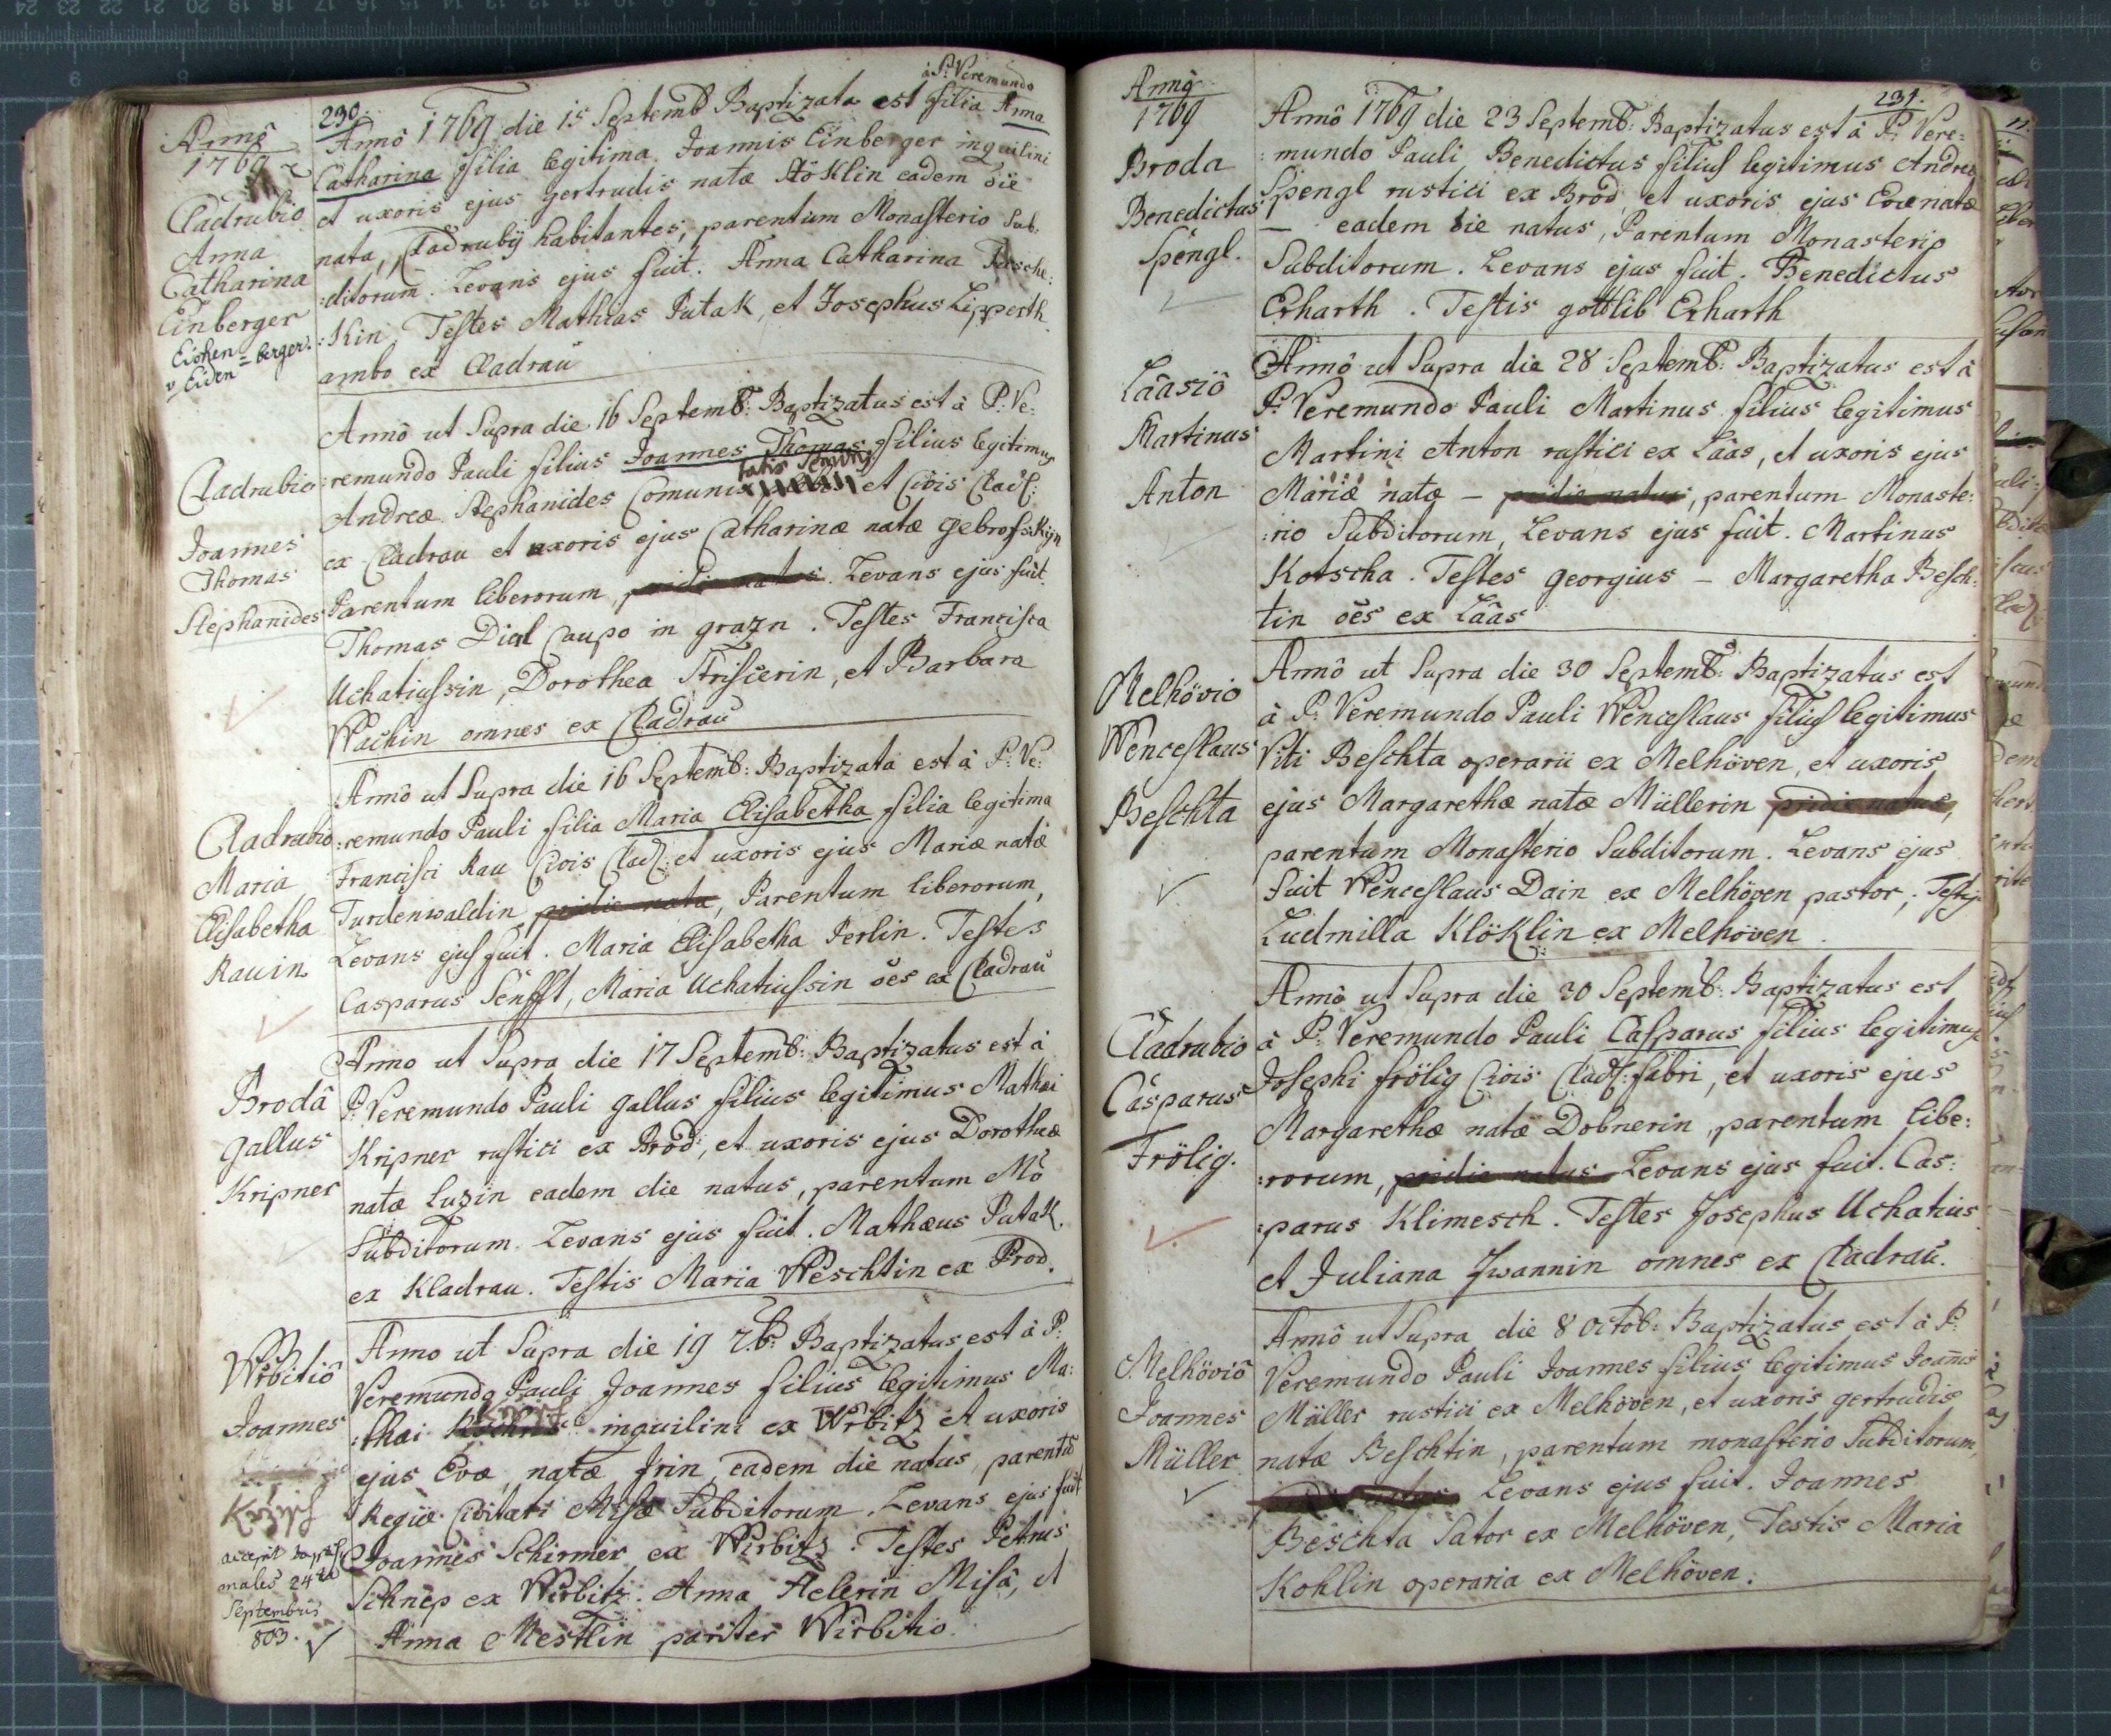 230.
Anno
1769
Cladrubio
Anna
Catharina
Einberger
Eichen=berger.
v Eiden
à P: Veremundo
Anno 1769 die 15 Septemb Baptizata est filia Anna
Catharina filia legitima Joannis Einberger inquilini
et uxoris ejus gertrudis natæ Köklin eadem die
nata, Cladruby habitantes, parentum Monasterio Sub:
:ditorum. Levans ejus fuit. Anna Catharina Tesche:
:kin Testes Mathias Putak, et Josephus Lipperth
ambo ex Cladrau
Cladrubio
Joannes
Thomas
Stephanides
Anno ut Supra die 16 Septemb: Baptizatus est à P: Ve:
:remundo Pauli filius Joannes Thomas filius legitimus
Andreæ Stephanides Comuni et Civis Clad:
ex Cladrau et uxoris ejus Catharinæ natæ gebrosskyn
Parentum liberorum, pridie natus. Levans ejus fuit
Thomas Dial Caupo in grazn. Testes Francisca
Uchatiussin, Dorothea Strisierin, et Barbara
Wachin omnes ex Cladrau
Cladrubio
Maria
Elisabetha
Rauin
Anno ut Supra die 16 Septemb: Baptizata est à P: Ve:
:remundo Pauli filia Maria Elisabetha filia legitima
Francisci Rau Civis Clad: et uxoris ejus Mariæ natæ
Turdenwaldin pridie nata, Parentum liberorum,
Levans ejus fuit. Maria Elisabetha Perlin. Testes
Casparus Senfft, Maria Uchatiussin ões ex Cladrau
Brodâ
gallus
Kripner
Anno ut Supra die 17 Septemb: Baptizatus est à
P: Veremundo Pauli gallus filius legitimus Mathæi
Kripner rustici ex Brod, et uxoris ejus Dorotheæ
natæ Luzin eadem die natus, parentum Mõ
Subditorum. Levans ejus fuit. Mathæus Putak
ex Kladrau. Testis Maria Weschtin ex Prod.
Wrbitiô
Joannes
accepit baptis
males 24ta
Septembris
803.
Anno ut Supra die 19 7br: Baptizatus est à P:
Veremundo Pauli Joannes filius legitimus Ma:
:thæi inquilini ex Wrbitz et uxoris
ejus Evæ, natæ Irin, eadem die natus, parentũ
Regiæ Civitati Misæ Subditorum. Levans ejus fuit
Joannes Schirmer ex Wirbitz. Testes Petrus
Schnep ex Wirbitz. Anna Helerin Misâ, et
Anna Mestlin pariter Wirbitio.
231.
Anno
1769
Broda
Benedictus
Spengl.
Anno 1769 die 23 Septemb: Baptizatus est à P: Vere:
:mundo Pauli Benedictus filius legitimus Andreæ
Spengl rustici ex Brod, et uxoris ejus Evæ natæ
— eadem die natus, Parentum Monasterio
Subditorum. Levans ejus fuit. Benedictus
Erharth. Testis gottlib Erharth
Lâasiô
Martinus
Anton
Anno ut Supra die 28 Septemb: Baptizatus est à
P: Veremundo Pauli Martinus filius legitimus
Martini Anton rustici ex Lâas, et uxoris ejus
Mariæ natæ — pridie natus, parentum Monaste:
:rio Subditorum, Levans ejus fuit. Martinus
Kotscha. Testes georgius — Margaretha Besch:
tin ões ex Lâas
Melhövio
Wenceslaus
Beschta
Anno ut Supra die 30 Septemb: Baptizatus est
à P: Veremundo Pauli Wenceslaus filius legitimus
Viti Beschta operarii ex Melhöven, et uxoris
ejus Margarethæ natæ Müllerin pridie natus,
parentum Monasterio Subditorum. Levans ejus
fuit Wenceslaus Dain ex Melhöven pastor, Testis
Ludmilla Klöklin ex Melhöven.
Cladrubio
Casparus
Frölig.
Anno ut Supra die 30 Septemb: Baptizatus est
à P: Veremundo Pauli Casparus filius legitimus
Josephi frölig Civis Clad: fabri, et uxoris ejus
Margarethæ natæ Dobnerin, parentum libe:
:rorum, pridie natus Levans ejus fuit. Cas:
:parus Klimesch. Testes Josephus Uchatius
et Juliana Iwannin omnes ex Cladrau.
Melhöviô
Joannes
Müller
Anno ut Supra die 8 Octob: Baptizatus est à P:
Veremundo Pauli Joannes filius legitimus Joannis
Müller rustici ex Melhöven, et uxoris gertrudis
natæ Beschtin, parentum monasterio Subditorum,
pridie natus Levans ejus fuit. Joannes
Beschta Sator ex Melhöven, Testis Maria
Kohlin operaria ex Melhöven.